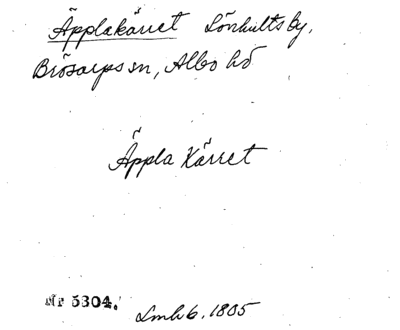 Äpplakärret Lönhults by,
Brösarps sn, Albo hd
Äppla Kärret
Nr 5304.
Lmh 6. 1805